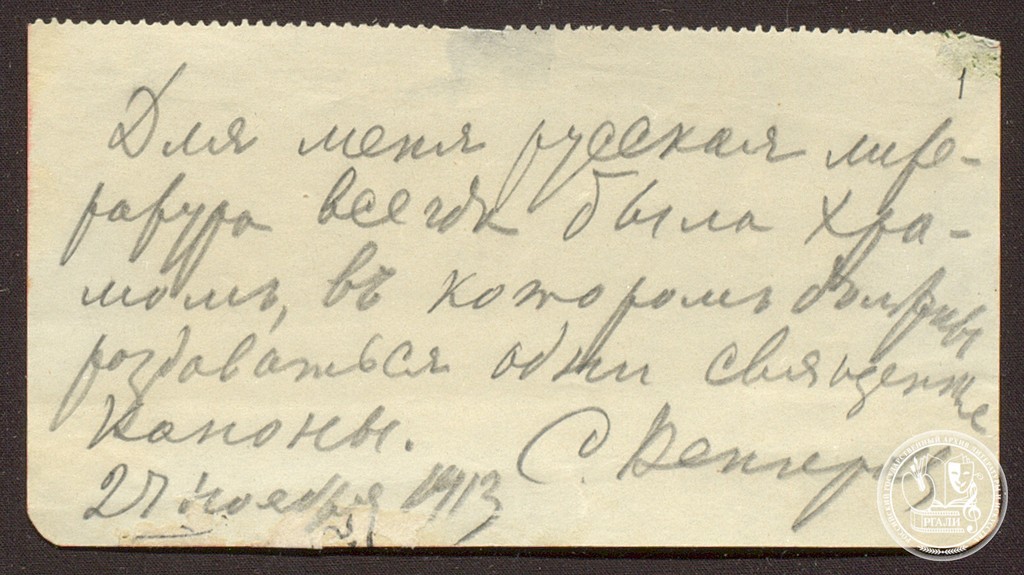 1
Для меня русская лите-
ратура всегда была хра-
момъ, въ которомъ должны
раздаваться одни священные
каноны.
С. Венгеров
27 ноября 1913
РГАЛИ